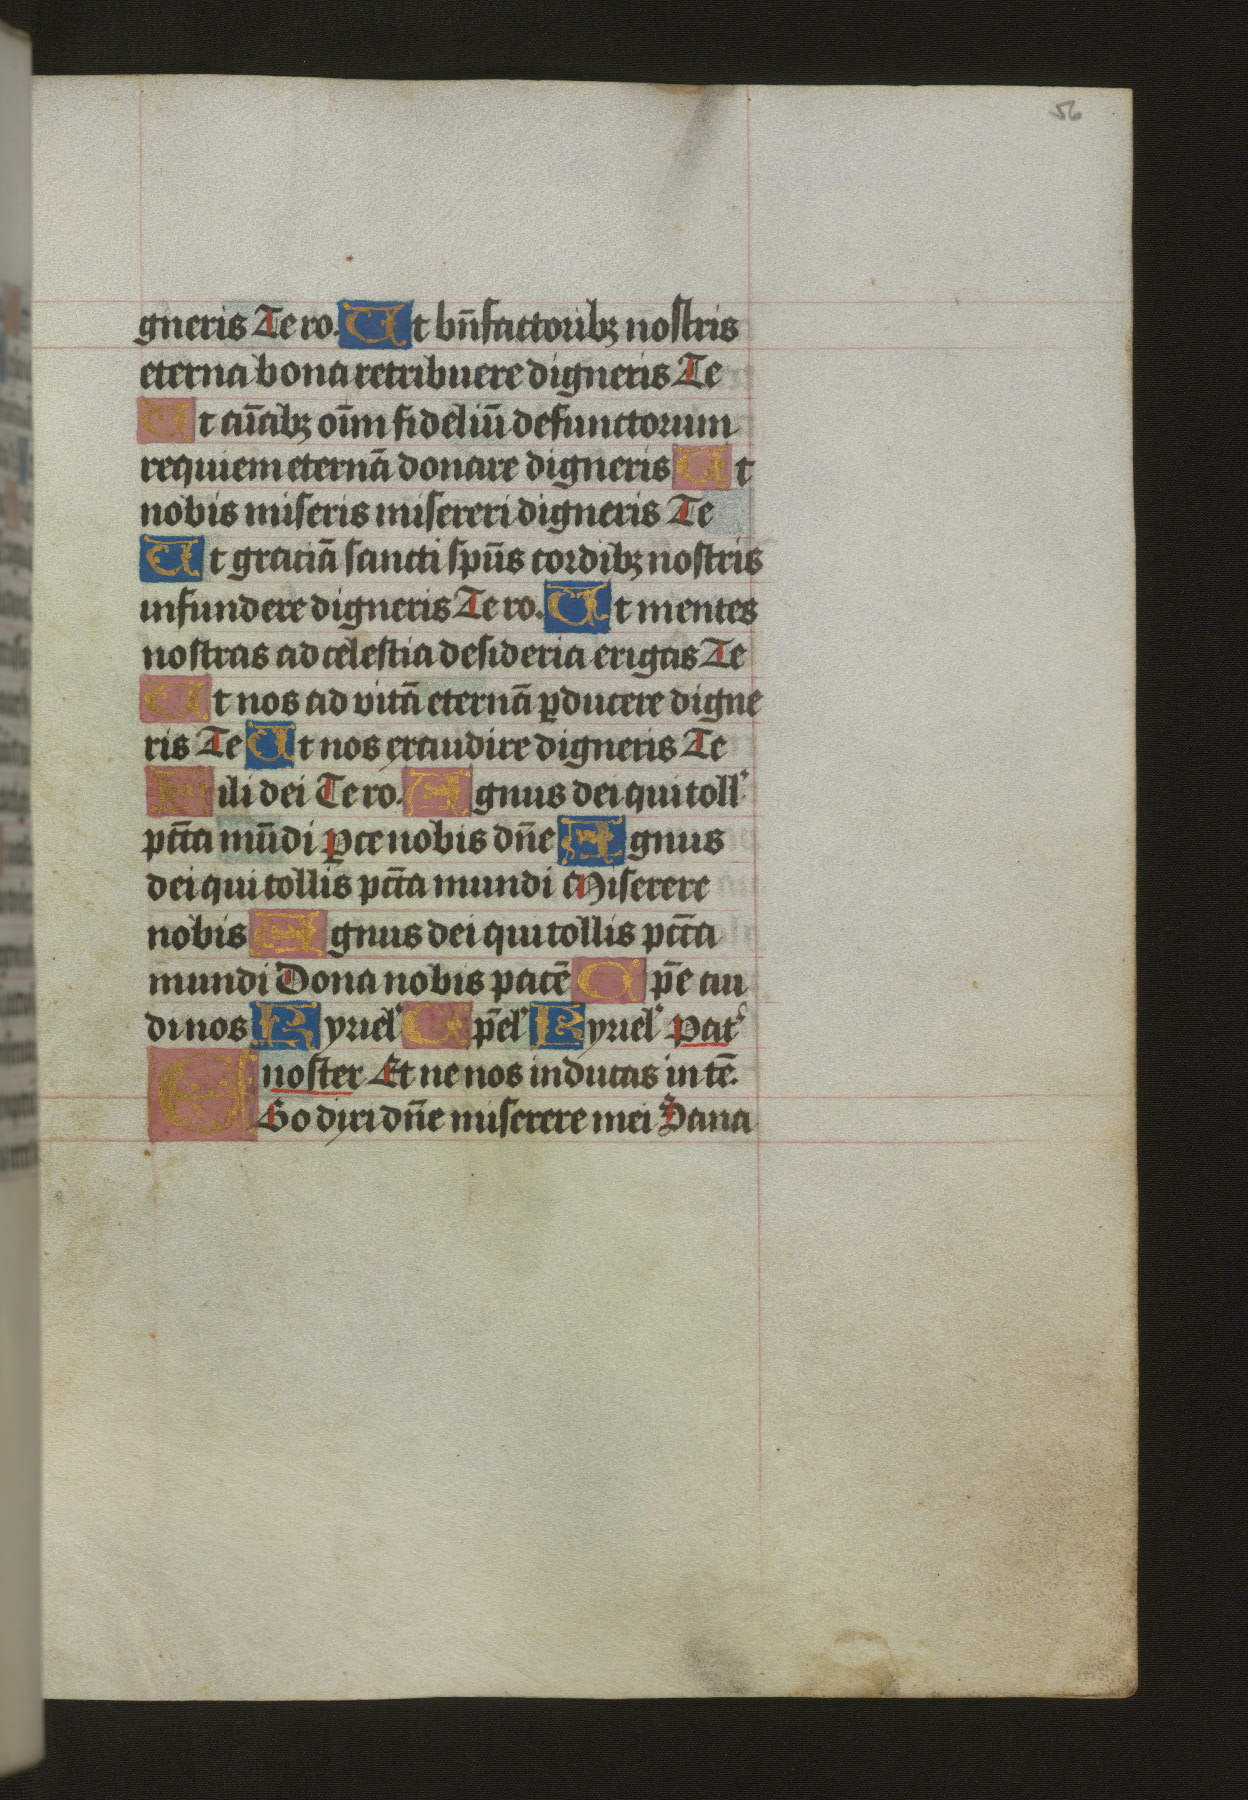 56
gneris Te ro. Ut bn̄factoribꝫ nostris
eterna bona retribuere digneris Te
Ut aīabꝫ oīm fideliū defunctorum
requiem eternā donare digneris Ut
nobis miseris misereri digneris Te
Ut graciā sancti sp̄us cordibꝫ nostris
infundere digneris Te ro. Ut mentes
nostras ad celestia desideria erigas Te
Ut nos ad vitā eternā ꝑducere digne
ris Te Ut nos exaudire digneris Te
Fili dei Te ro. Agnus dei qui toll'
pc̄ca mūdi Ꝑce nobis dn̄e Agnus
dei qui tollis pc̄ca mundi Miserere
nobis Agnus dei qui tollis pc̄ca
mundi Dona nobis pacē Cp̄e au
di nos Kyriel' Cp̄el' Kyriel' Pat'
noster Et ne nos inducas in tē.
EGo dixi dn̄e miserere mei Sana